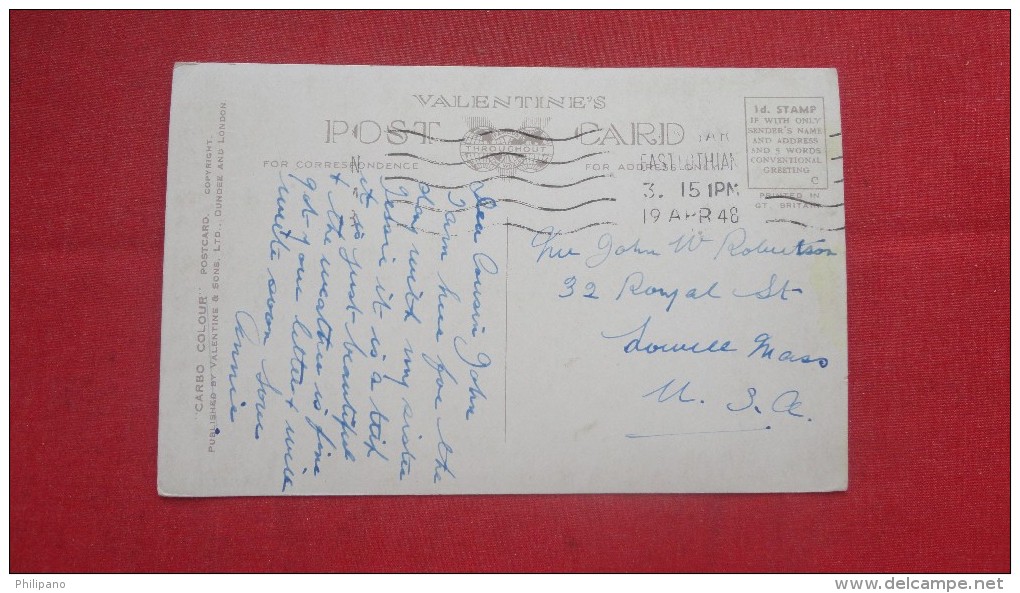 VALENTINE'S
POST CARD
THROUGHOUT
FOR CORRESPONDENCE
FOR ADDRESS ONLY
1d. STAMP
IF WITH ONLY
SENDER'S NAME
AND ADDRESS
AND 5 WORDS
CONVENTIONAL
GREETING
C
PRINTED IN
GT. BRITAIN
EAST LOTHIAN
3. 15 PM
19 APR 48
"CARBO COLOUR" POSTCARD. COPYRIGHT.
PUBLISHED BY VALENTINE & SONS, LTD., DUNDEE AND LONDON
Dear Cousin John
I am here for the
day with my sister
Jessie it is a
it is just beautiful
& the weather is fine
got your letter & will
write soon love
Annie
John W Robertson
32 Royal St
Lowell Mass
U. S. A.
Philipano
www.delcampe.net